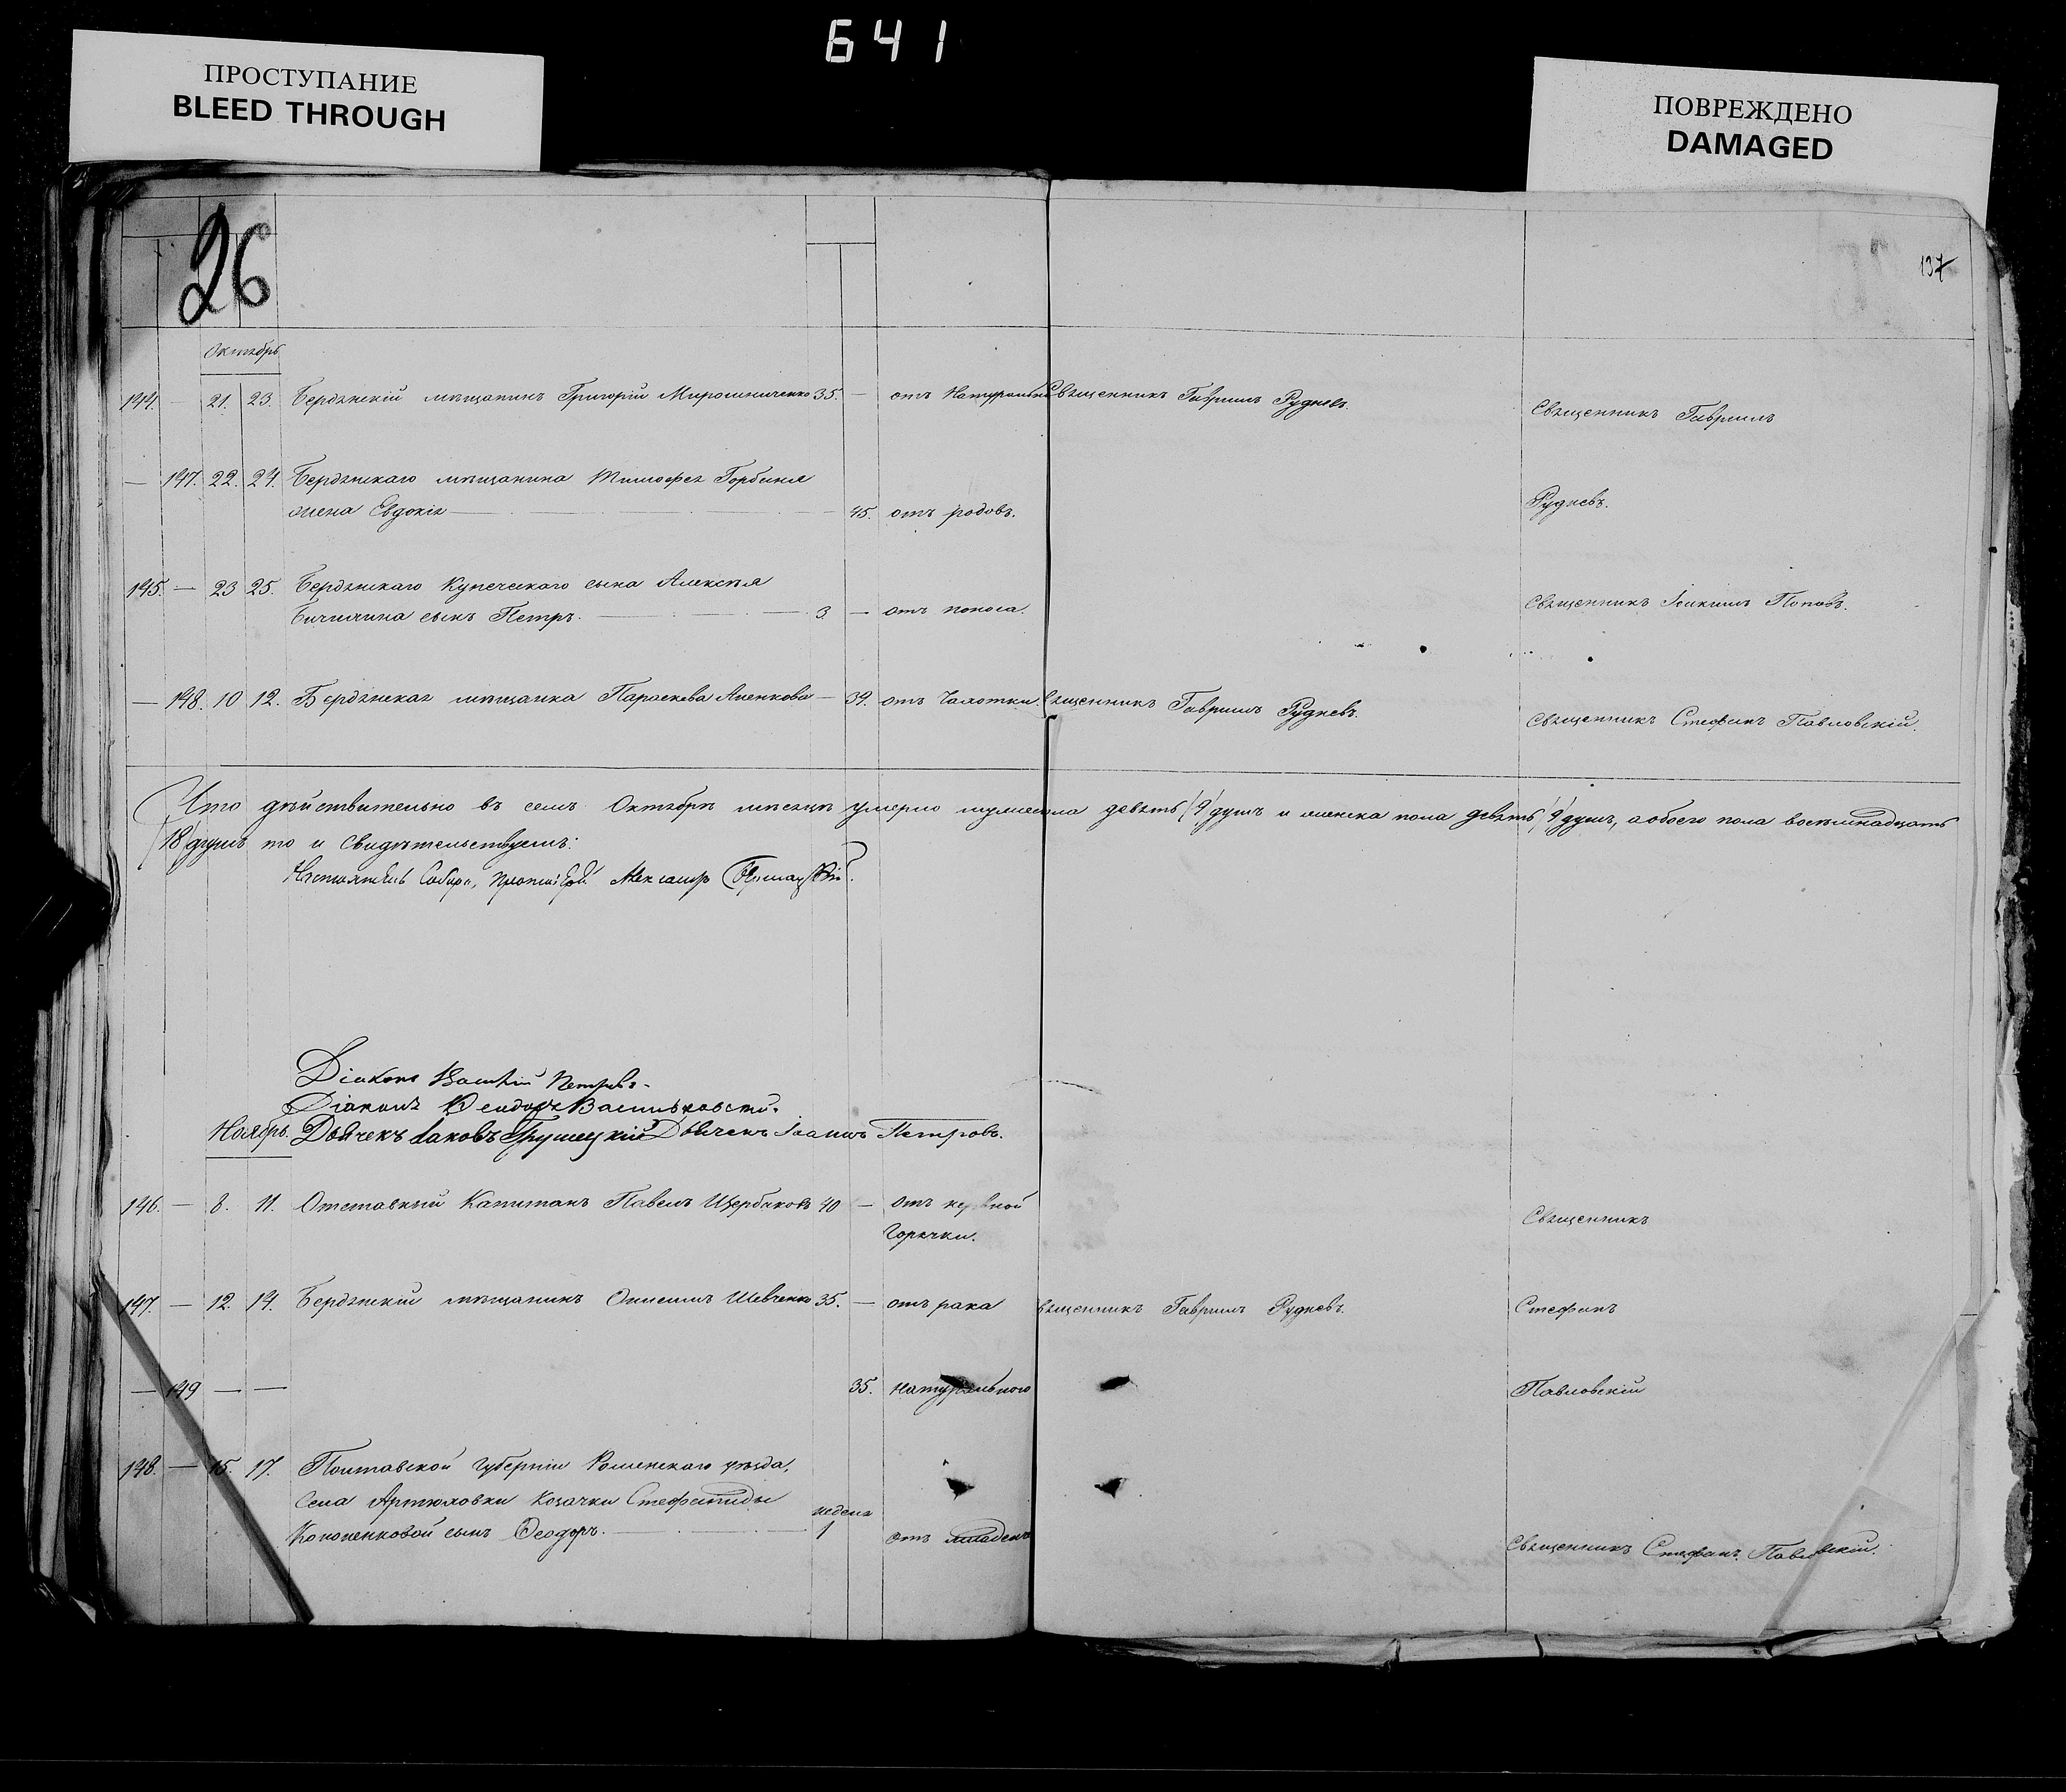 641
ПРОСТУПАНИЕ
BLEED THROUGH
ПОВРЕЖДЕНО
DAMAGED
26
137
Октябрь
144. — 21. 23. Бердянскій мѣщанинъ Григорій Мирошниченко 35. — отъ Натуральн Священникъ Гавріилъ Рудневъ. Священникъ Гавріилъ
— 147. 22. 24. Бердянскаго мѣщанина Тимофея
жена Евдокія — 45. отъ родовъ. Рудневъ.
145. — 23 25. Бердянскаго Купеческаго сына Алексѣя
сынъ Петръ. — 3 — отъ поноса. Священникъ Іоакимъ Поповъ.
— 148. 10 12. Бердянская мѣщанка Параскева — 39. отъ Чахотки. Священникъ Гавріилъ Рудневъ. Священникъ Стефанъ Павловскій.
Что дѣйствительно въ семъ Октябрѣ мѣсяцѣ умерло мужеска пола девять /9/ душъ и женска пола девять /9/ душъ, а обоего пола восемнадцать
/18/ душъ то и свидѣтельствуемъ:
Настоятель Собора, Протоіерей Александр
Діаконъ Василій Петровъ.
Діаконъ Ѳеодоръ Васильковскій.
Ноябрь. Дьячекъ Іаковъ Грушецкій Дьячекъ Іоаннъ Петровъ.
146. — 8. 11. Отставный Капитанъ Павелъ Щербаковъ 40 — отъ нервной Священникъ
горячки.
147. — 12. 14. Бердянскій мѣщанинъ Онисимъ Шевченко 35. — отъ рака Священникъ Гавріилъ Рудневъ. Стефанъ
— 149 — — 35. натуральнаго Павловскій
148. — 15. 17. Полтавской Губерніи Роменскаго уѣзда,
Села Артюховки Козачки Стефаниды недѣля
Кононенковой сынъ Ѳеодоръ. — 1 отъ младенч Священникъ Стефанъ Павловскій.